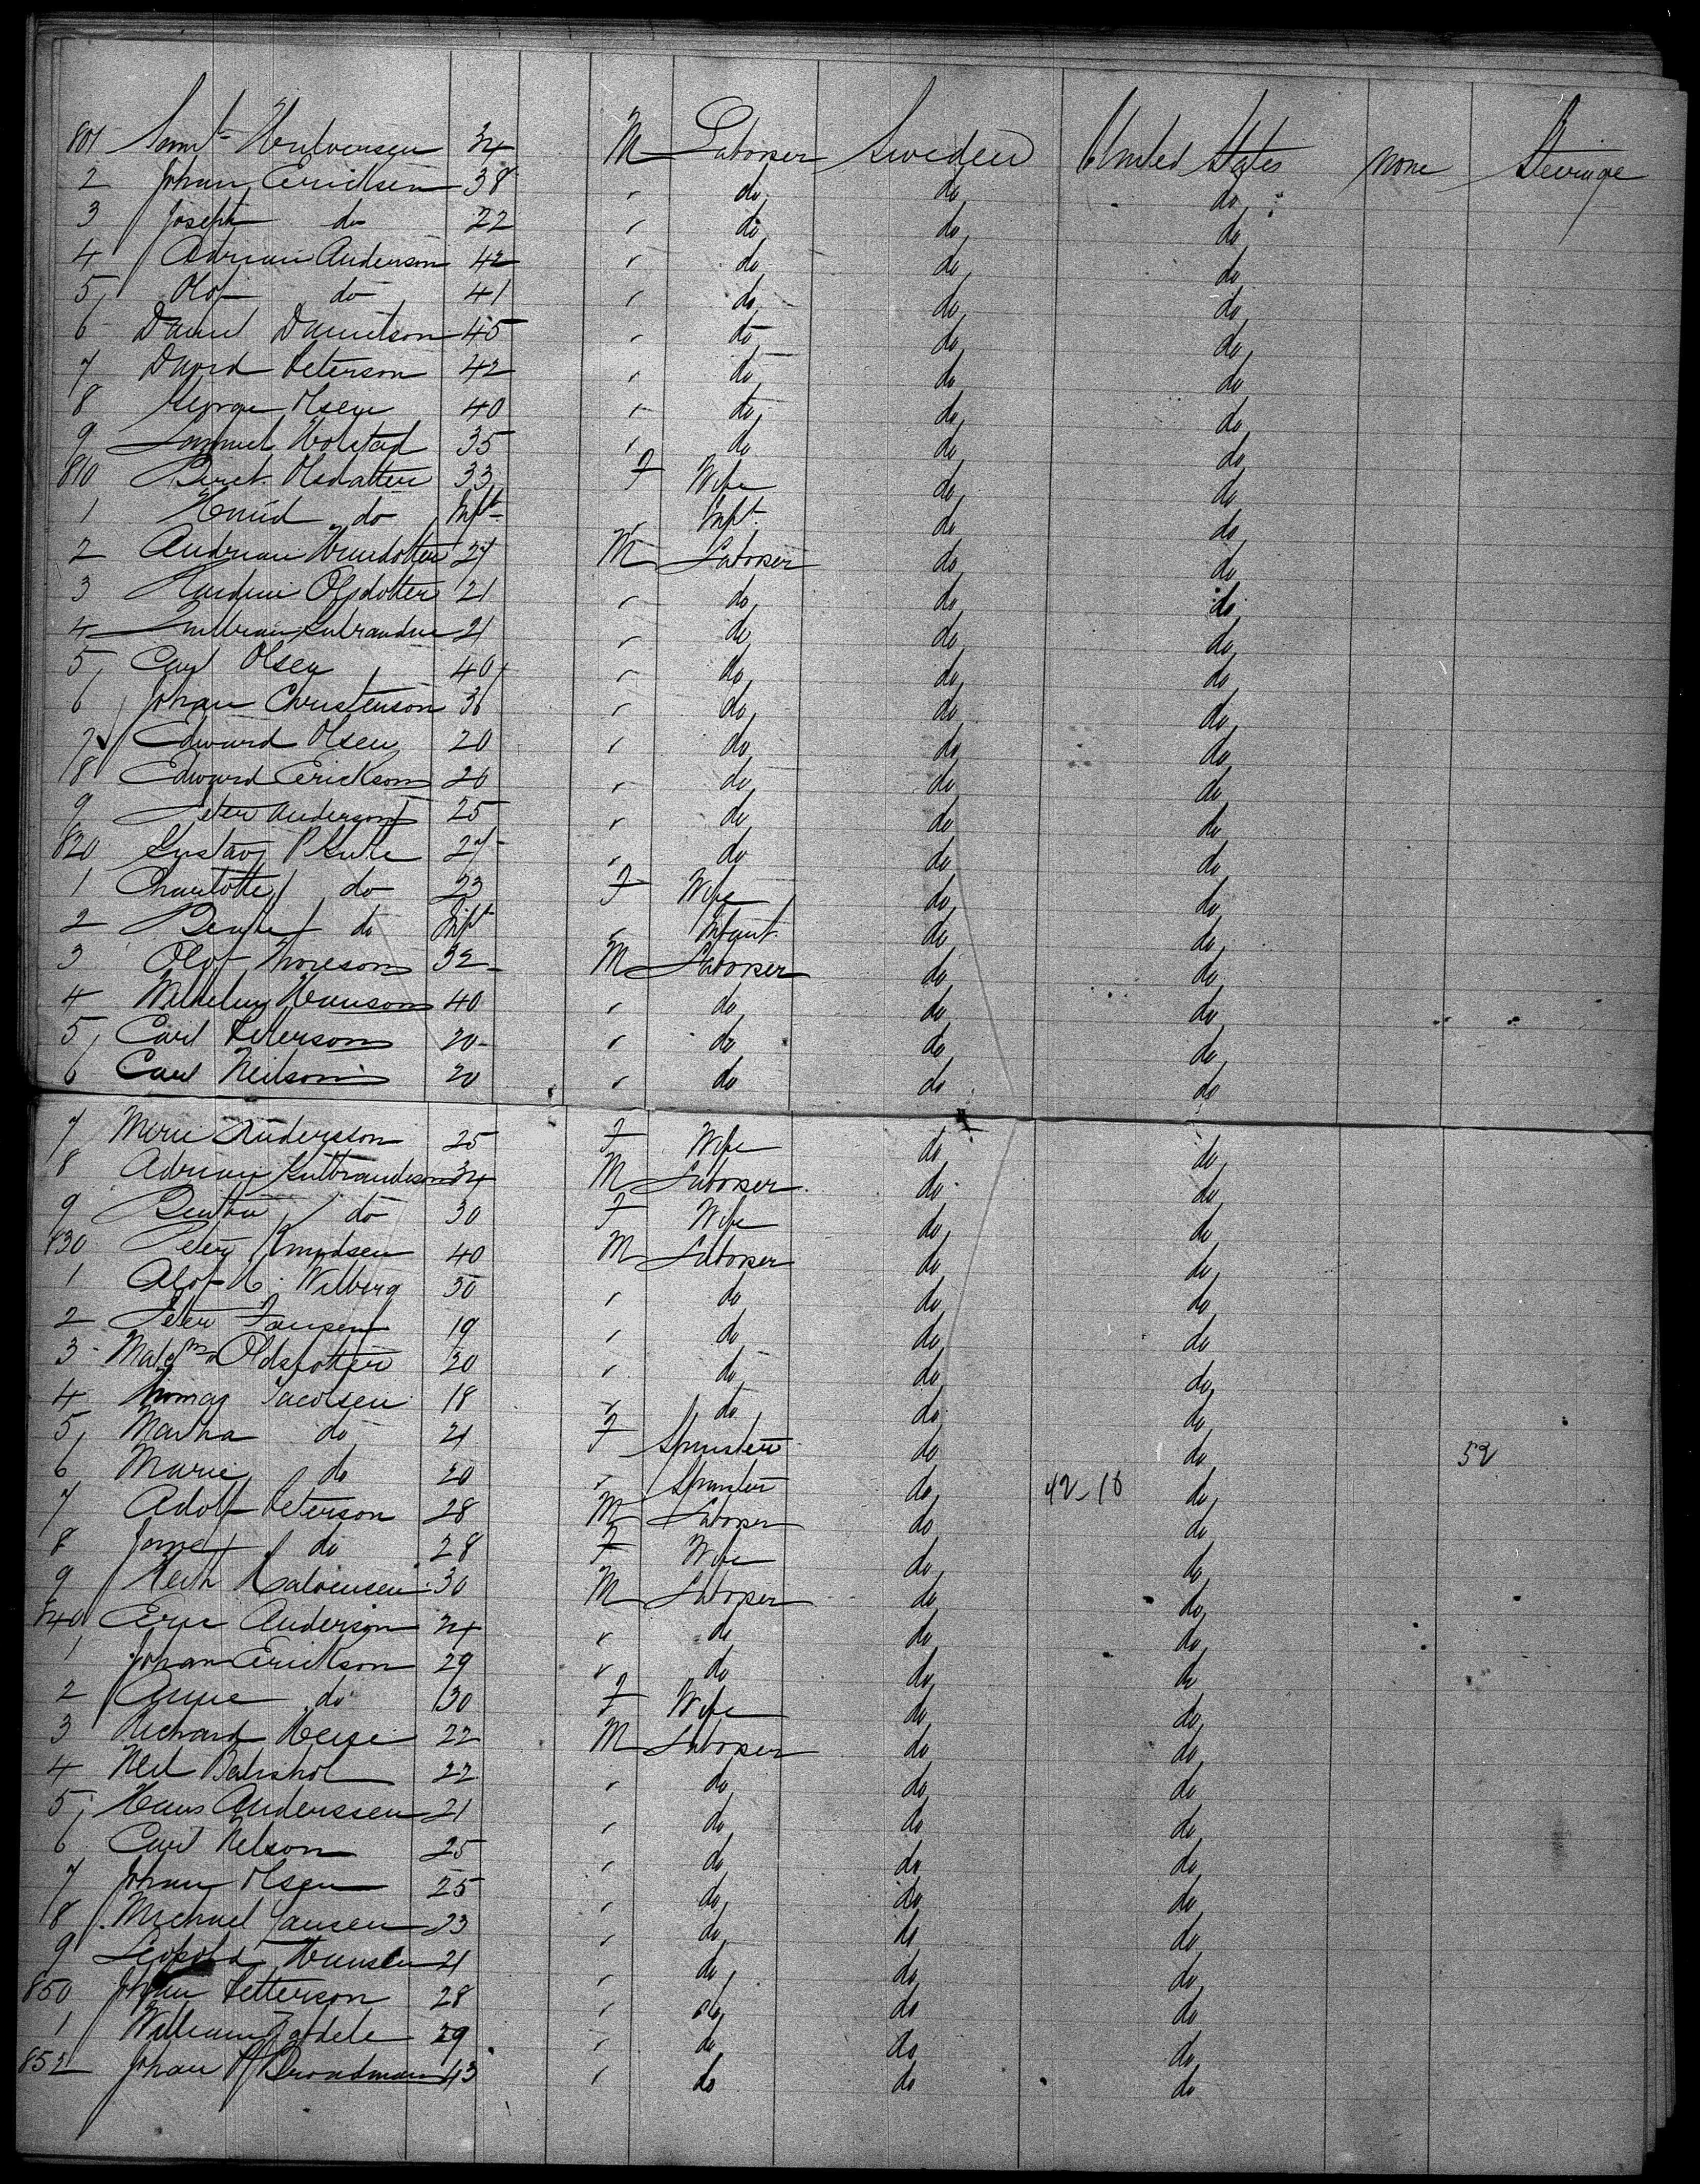 801 Saml Halvorsen 34 M Laborer Sweden United States none Steerage
2 Johan Ericksen 38 " do do do
3 Joseph do 22 " do do do
4 Adrian Anderson 42 " do do do
5 Olof do 41 " do do do
6 Daniel Danielson 45 " do do do
7 David Peterson 42 " do do do
8 George Olsen 40 " do do do
9 Samuel Holstad 35 " do do do
810 Beret Olsdatter 33 F Wife do do
1 do Inft " Inft do do
2 Andrian 27 M Laborer do do
3 Olsdotter 21 " do do do
4 21 " do do do
5 Carl Olsen 40 " do do do
6 Johan Christenson 36 " do do do
7 Edward Olsen 20 " do do do
8 Edward Erickson 20 " do do do
9 Peter Anderson 25 " do do do
820 Gustav 27 " do do do
1 Charlotte do 23 F Wife do do
2 do Inft " Infant do do
3 Olof 32 M Laborer do do
4 Hanson 40 " do do do
5 Carl Peterson 20 " do do do
6 Carl Neilson 20 " do do do
7 Merie Andersson 25 F Wife do do
8 Adrian Gulbrandson 34 M Laborer do do
9 Bertha do 30 F Wife do do
830 Peter Knudsen 40 M Laborer do do
1 Olof Wilberg 50 " do do do
2 Peter Jansen 19 " do do do
3 20 " do do do
4 Thomas Jacobsen 18 " do do do
5 Martha do 21 F Spinster do do 52
6 Marie do 20 " Spinster do 42-10 do
7 Adolf Peterson 28 M Laborer do do
8 do 28 F Wife do do
9 Halvensen 30 M Laborer do do
840 Eric Anderson 24 " do do do
1 Johan Erickson 29 " do do do
2 Anne do 30 F Wife do do
3 Richard 22 M Laborer do do
4 Neil 22 " do do do
5 Hans Anderssen 21 " do do do
6 Carl Nelson 25 " do do do
7 Johan Olsen 25 " do do do
8 Michael Jansen 23 " do do do
9 Leopold Hansen 21 " do do do
850 Johan Petterson 28 " do do do
1 William 29 " do do do
852 Johan Broadman 43 " do do do